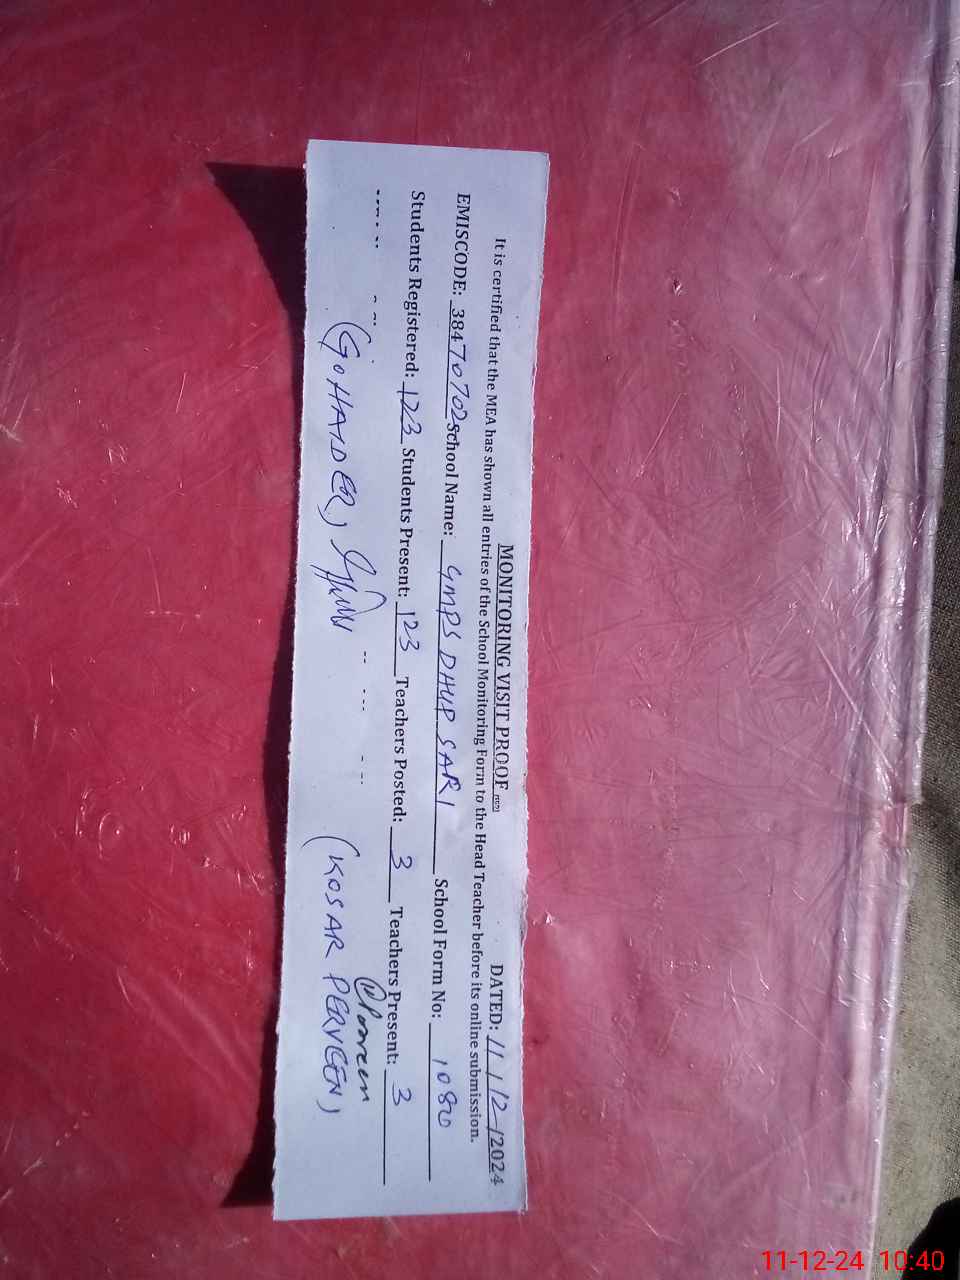 MONITORING VISIT PROOF
DATED: 11/12/2024
It is certified that the MEA has shown all entries of the School Monitoring Form to the Head Teacher before its online submission.
EMISCODE: 38470702 School Name: GMPS DHUP SARI School Form No: 1080
Students Registered: 123 Students Present: 123 Teachers Posted: 3 Teachers Present: 3
(G. HAIDER)
(KOSAR PERVEEN)
11-12-24 10:40